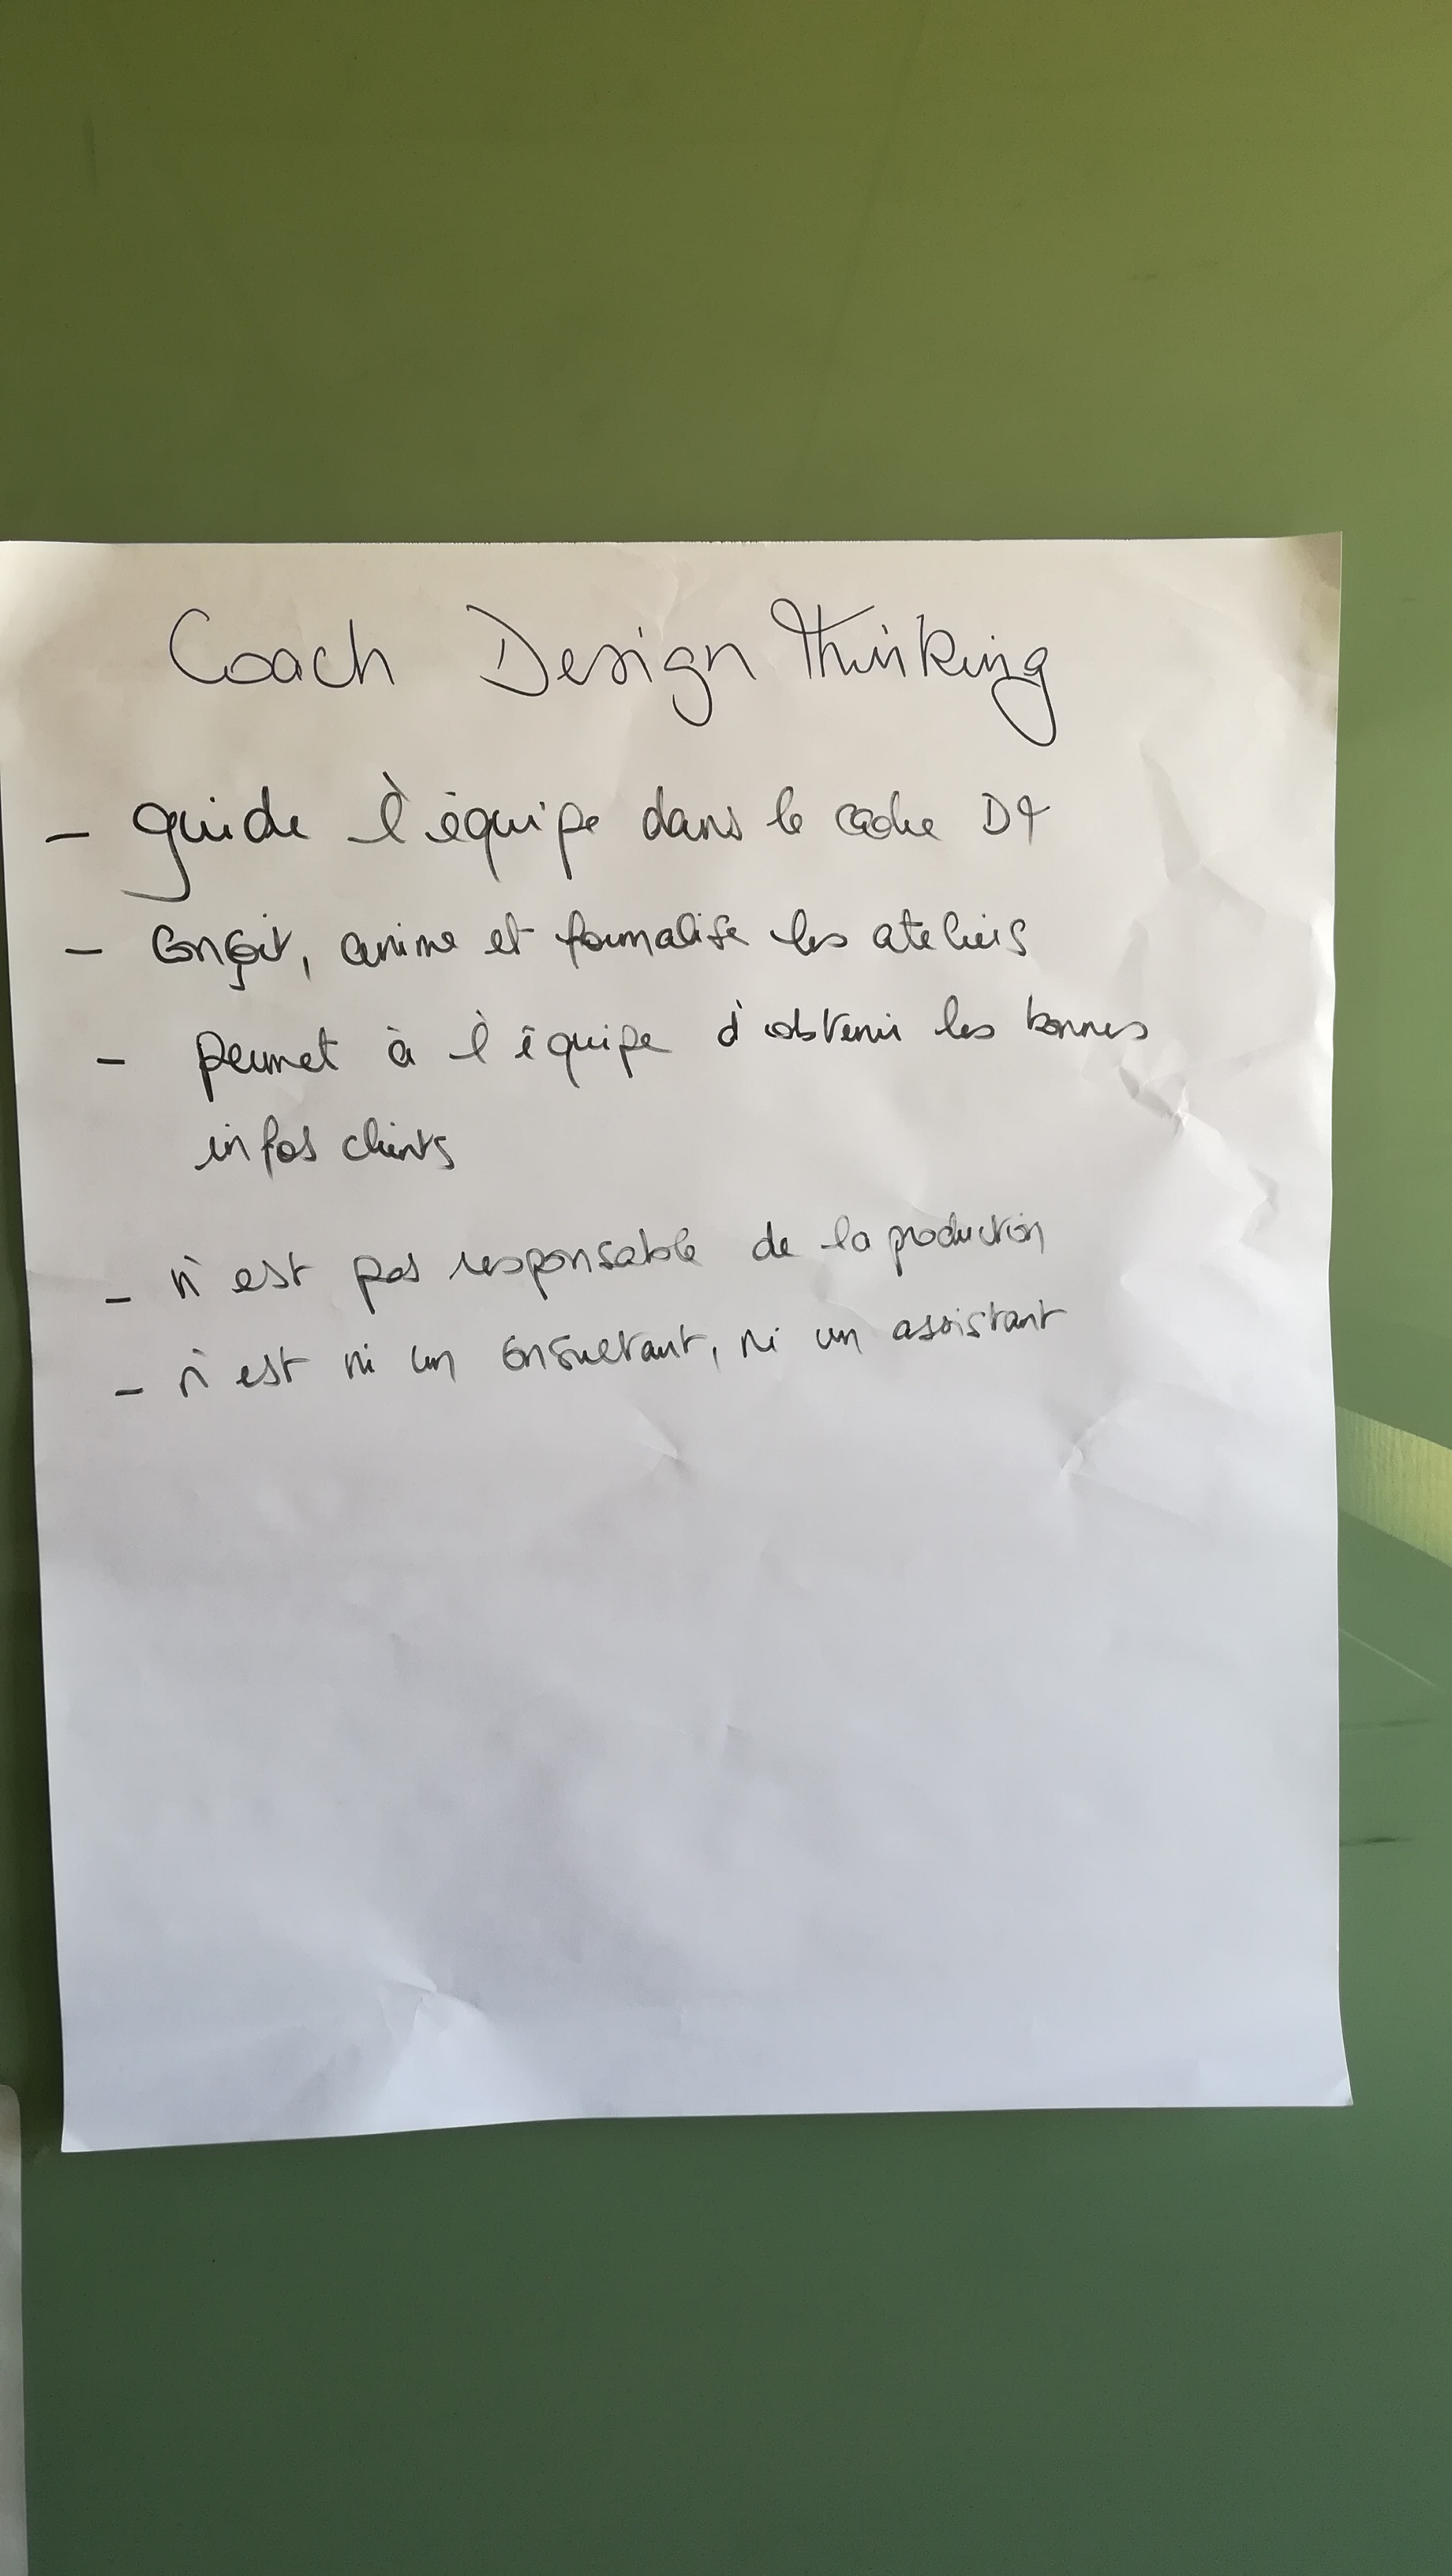 Coach Design Thinking
- guide l'équipe dans le cadre DT
- Conçoit, anime et formalise les ateliers
- permet à l'équipe d'obtenir les bonnes
infos clients
- n'est pas responsable de la production
- n'est ni un consultant, ni un assistant